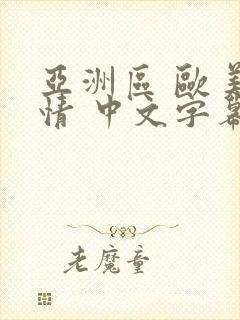 亞洲區 歐美
情 中文字幕
老魔童